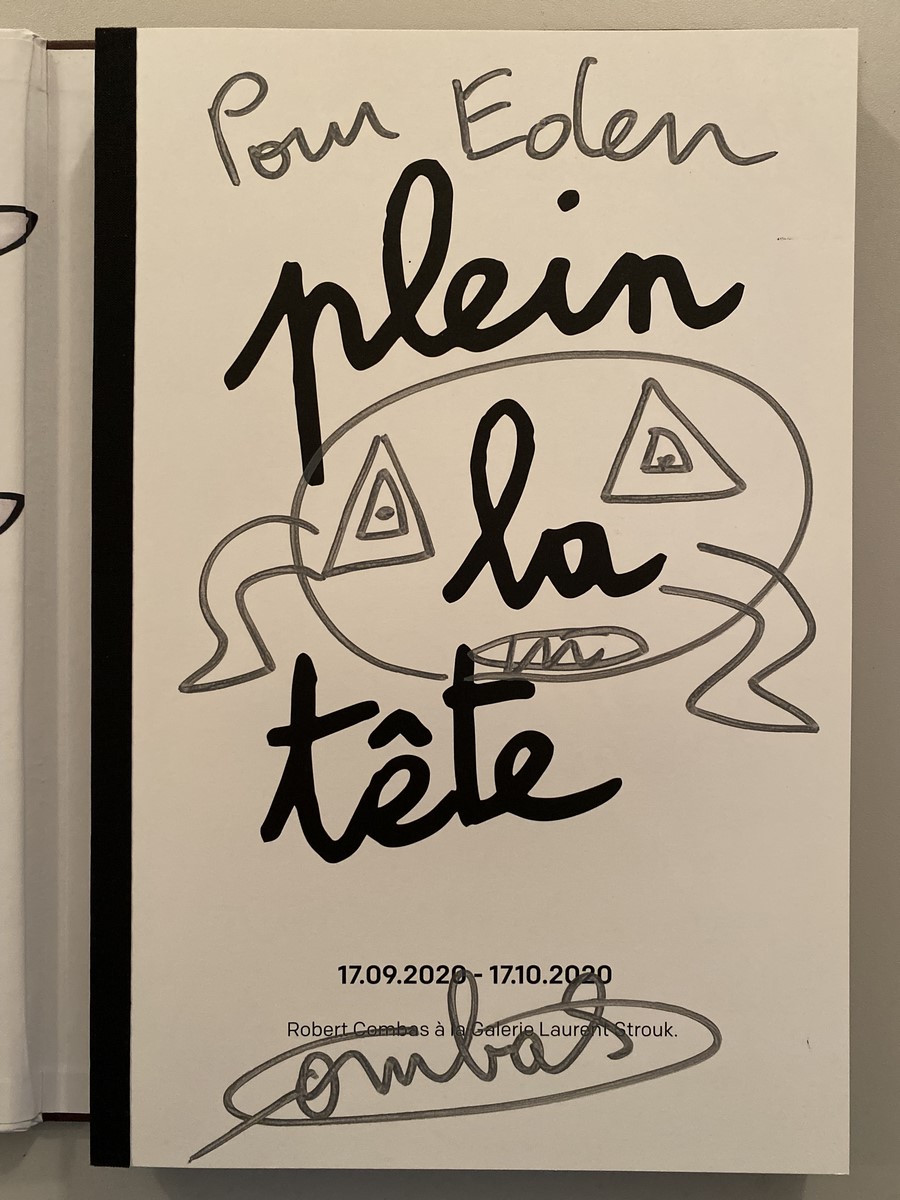 Pour Eden
plein
la
tête
17.09.2020 - 17.10.2020
Robert Combas à la Galerie Laurent Strouk.
Combas